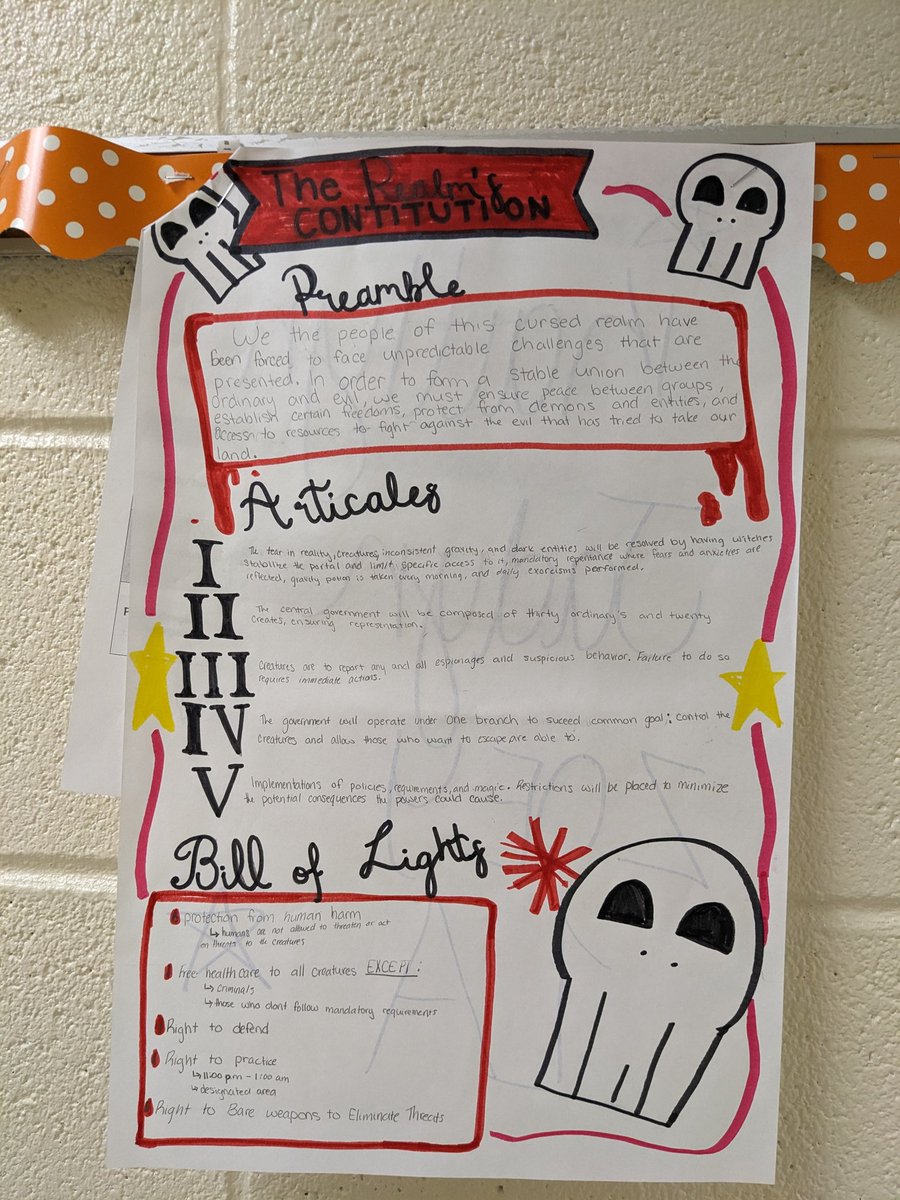 The Realm's
CONTITUTION
Preamble
We the people of this cursed realm have
been forced to face unpredictable challenges that are
presented. In order to form a stable union between the
ordinary and evil, we must ensure peace between groups,
establish certain freedoms, protect from demons and entities, and
access to resources to fight against the evil that has tried to take our
land.
Articales
I
The tear in reality, creatures, inconsistent gravity, and dark entities will be resolved by having witches
stabilize the portal and limit specific access to it, mandatory repentance where fears and anxieties are
reflected, gravity potion is taken every morning, and daily exorcisms performed.
II
The central government will be composed of thirty ordinary's and twenty
creates, ensuring representation.
III
Creatures are to report any and all espionages and suspicious behavior. Failure to do so
requires immediate actions.
IV
The government will operate under one branch to suceed common goal: control the
creatures and allow those who want to escape are able to.
V
Implementations of policies, requirements, and magic. Restrictions will be placed to minimize
the potential consequences the powers could cause.
Bill of Lights
protection from human harm
↳ humans are not allowed to threaten or act
on threats to the creatures
free healthcare to all creatures EXCEPT:
↳ criminals
↳ those who dont follow mandatory requirements
Right to defend
Right to practice
↳ 11:00 pm - 1:00 am
↳ designated area
Right to Bare weapons to Eliminate Threats